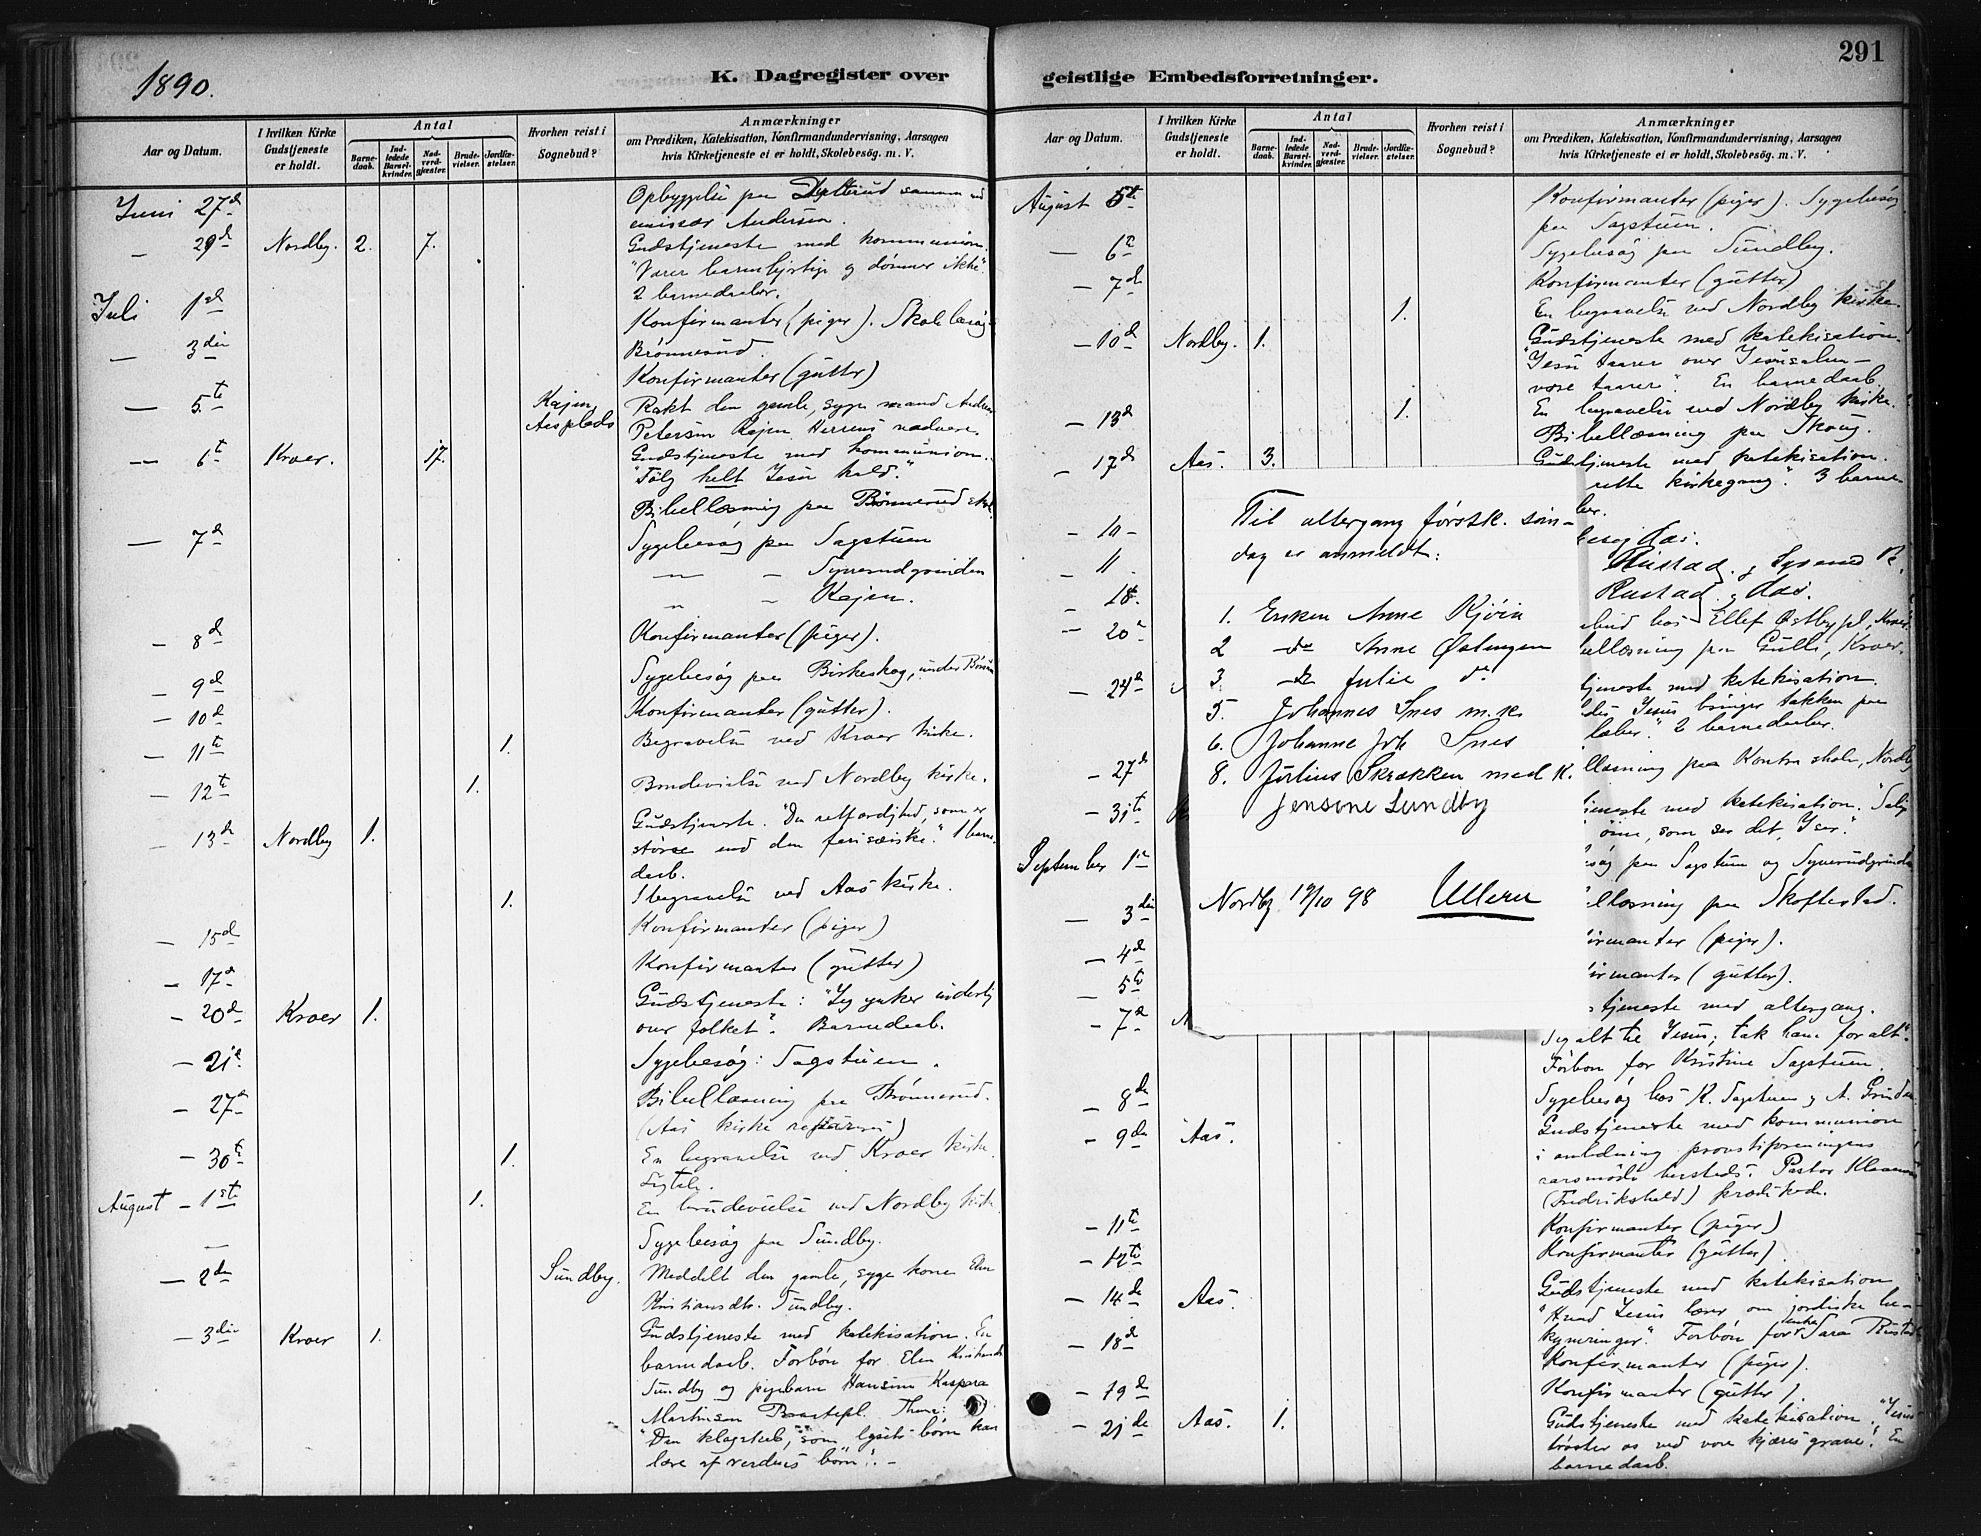 1890.
K. Dagregister over
Aar og Datum.
I hvilken Kirke Gudstjeneste er holdt.
Antal
Barne-daab.
Ind-ledede Barsel-kvinder.
Nad-verd-gjæster.
Brude-vielser.
Jordfæ-stelser.
Hvorhen reist i Sognebud?
Anmærkninger
om Prædiken, Katekisation, Konfirmandundervisning, Aarsagen
hvis Kirketjeneste ei er holdt, Skolebesög. m. V.
Juni 27de Opbyggelse paa sammen med
emissær Andersen.
— 29de Nordby. 2. 7. Gudstjeneste med kommunion.
"Værer barmhjertige og dömmer ikke".
2 barnedaaber.
Juli 1ste Konfirmanter (piger). Skolebesög
Brönnerud.
— 3die Konfirmanter (gutter)
— 5te Kajen, Aasplads Rakt den gamle, syge mand Anders
Petersen Kajen Herrens nadvere.
— 6te Kroer. 17. Gudstjeneste med kommunion.
"Fölg helt Jesu kald."
Bibellæsning paa Brönnerud skole.
— 7de Sygebesög paa Sagstuen
— " — Synerudgrinden
— " — Kajen.
— 8de Konfirmanter (piger).
— 9de Sygebesög paa Birkeskog, under
— 10de Konfirmanter (gutter).
— 11te 1. Begravelse ved Kroer kirke.
— 12te 1. Brudevielse ved Nordby kirke.
— 13de Nordby 1. Gudstjeneste. "Den retfærdighed, som er
större end den farisæiske." 1 barne-
daab.
1. 1 begravelse ved Aas kirke.
— 15de Konfirmanter (piger)
— 17de Konfirmanter (gutter)
— 20de Kroer 1. Gudstjeneste: "Jeg ynkes inderlig
over folket". Barnedaab.
— 21de Sygebesög: Sagstuen.
— 27de Bibellæsning paa Brönnerud.
(Aas kirke )
— 30te 1. En begravelse ved Kroer kirke.
Ligtale.
August — 1ste 1. En brudevielse ved Nordby kirke
Sygebesög paa Sundby.
— 2den Sundby. Meddelt den gamle, syge kone Elen
Kristiansdtr. Sundby.
— 3die Kroer 1. Gudstjeneste med katekisation. En
barnedaab. Forbön for Elen
Sundby og pigebarn Hansine Kaspara
Martinsen Thema:
"Den klogskab, som lysets börn kan
lære af verdens börn". —
291
geistlige Embedsforretninger.
Aar og Datum.
I hvilken Kirke Gudstjeneste er holdt.
Antal
Barne-daab.
Ind-ledede Barsel-kvinder.
Nad-verd-gjæster.
Brude-vielser.
Jordfæ-stelser.
Hvorhen reist i Sognebud?
Anmærkninger
om Prædiken, Katekisation, Konfirmandundervisning, Aarsagen
hvis Kirketjeneste ei er holdt, Skolebesög. m. V.
August 5te Konfirmanter (piger). Sygebesög
paa Sagstuen.
— 6te Sygebesög paa Sundby.
— 7de Konfirmanter (gutter)
1. En begravelse ved Nordby kirke.
— 10de Nordby. 1. Gudstjeneste med katekisation.
"Jesu taarer over Jerusalem —
vore taarer". En barnedaab.
— 13de 1. En begravelse ved Nordby kirke.
Bibellæsning paa Skoug.
— 17de Aas. 3. Gudstjeneste med katekisation.
rette kirkegang". 3 barne-
ber.
— 10 — besög Aas.
— 11. Rustad
— 18. Rustad, Aas.
— 20de bud hos Ellef Östby pl, Kroer.
bellæsning paa Gulli, Kroer.
— 24de tjeneste med katekisation.
Jesus bringer takken paa
læber". 2 barnedaaber.
— 27de llæsning paa Kontra skole, Nordby
— 31te jeneste med katekisation. "Salig
öine, som ser det, I ser."
September 1ste besög paa Sagstuen og Synerudgrinden
— 3die ellæsning paa Skoftestad.
— 4de firmanter (piger).
— 5te firmanter (gutter).
— 7de tjeneste med altergang.
Sig alt til Jesus; tak ham for alt".
Forbön for Kristine Sagstuen.
— 8de Sygebesög hos K. Sagstuen og A. Grinden
— 9de Aas. Gudstjeneste med kommunion
i anledning provstiforeningens
aarsmöde hersteds. Pastor
(Fredrikshald) prædikede.
— 11te Konfirmanter (piger)
— 12te Konfirmanter (gutter)
— 14de Aas. Gudstjeneste med katekisation
"Hvad Jesus lærer om jordiske be-
kymringer". Forbön for enke Sara Rustad
— 18de Konfirmanter (piger).
— 19de Konfirmanter (gutter).
— 21de Aas. 1. Gudstjeneste med katekisation. "Jesus
tröster os ved vore kjæres grave". En
barnedaab.
Til altergang förstk. sön-
dag er anmeldt:
1. Enken Anne Kjöia
2 do Anne
3. do Julie do
5. Johannes Snes m. k.
6. Johanne Joh Snes
8. Julius Skrækken med K.
Jensine Sundby
Nordby 19/10 98 Ulleru